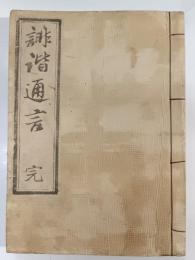 誹谐通言 完